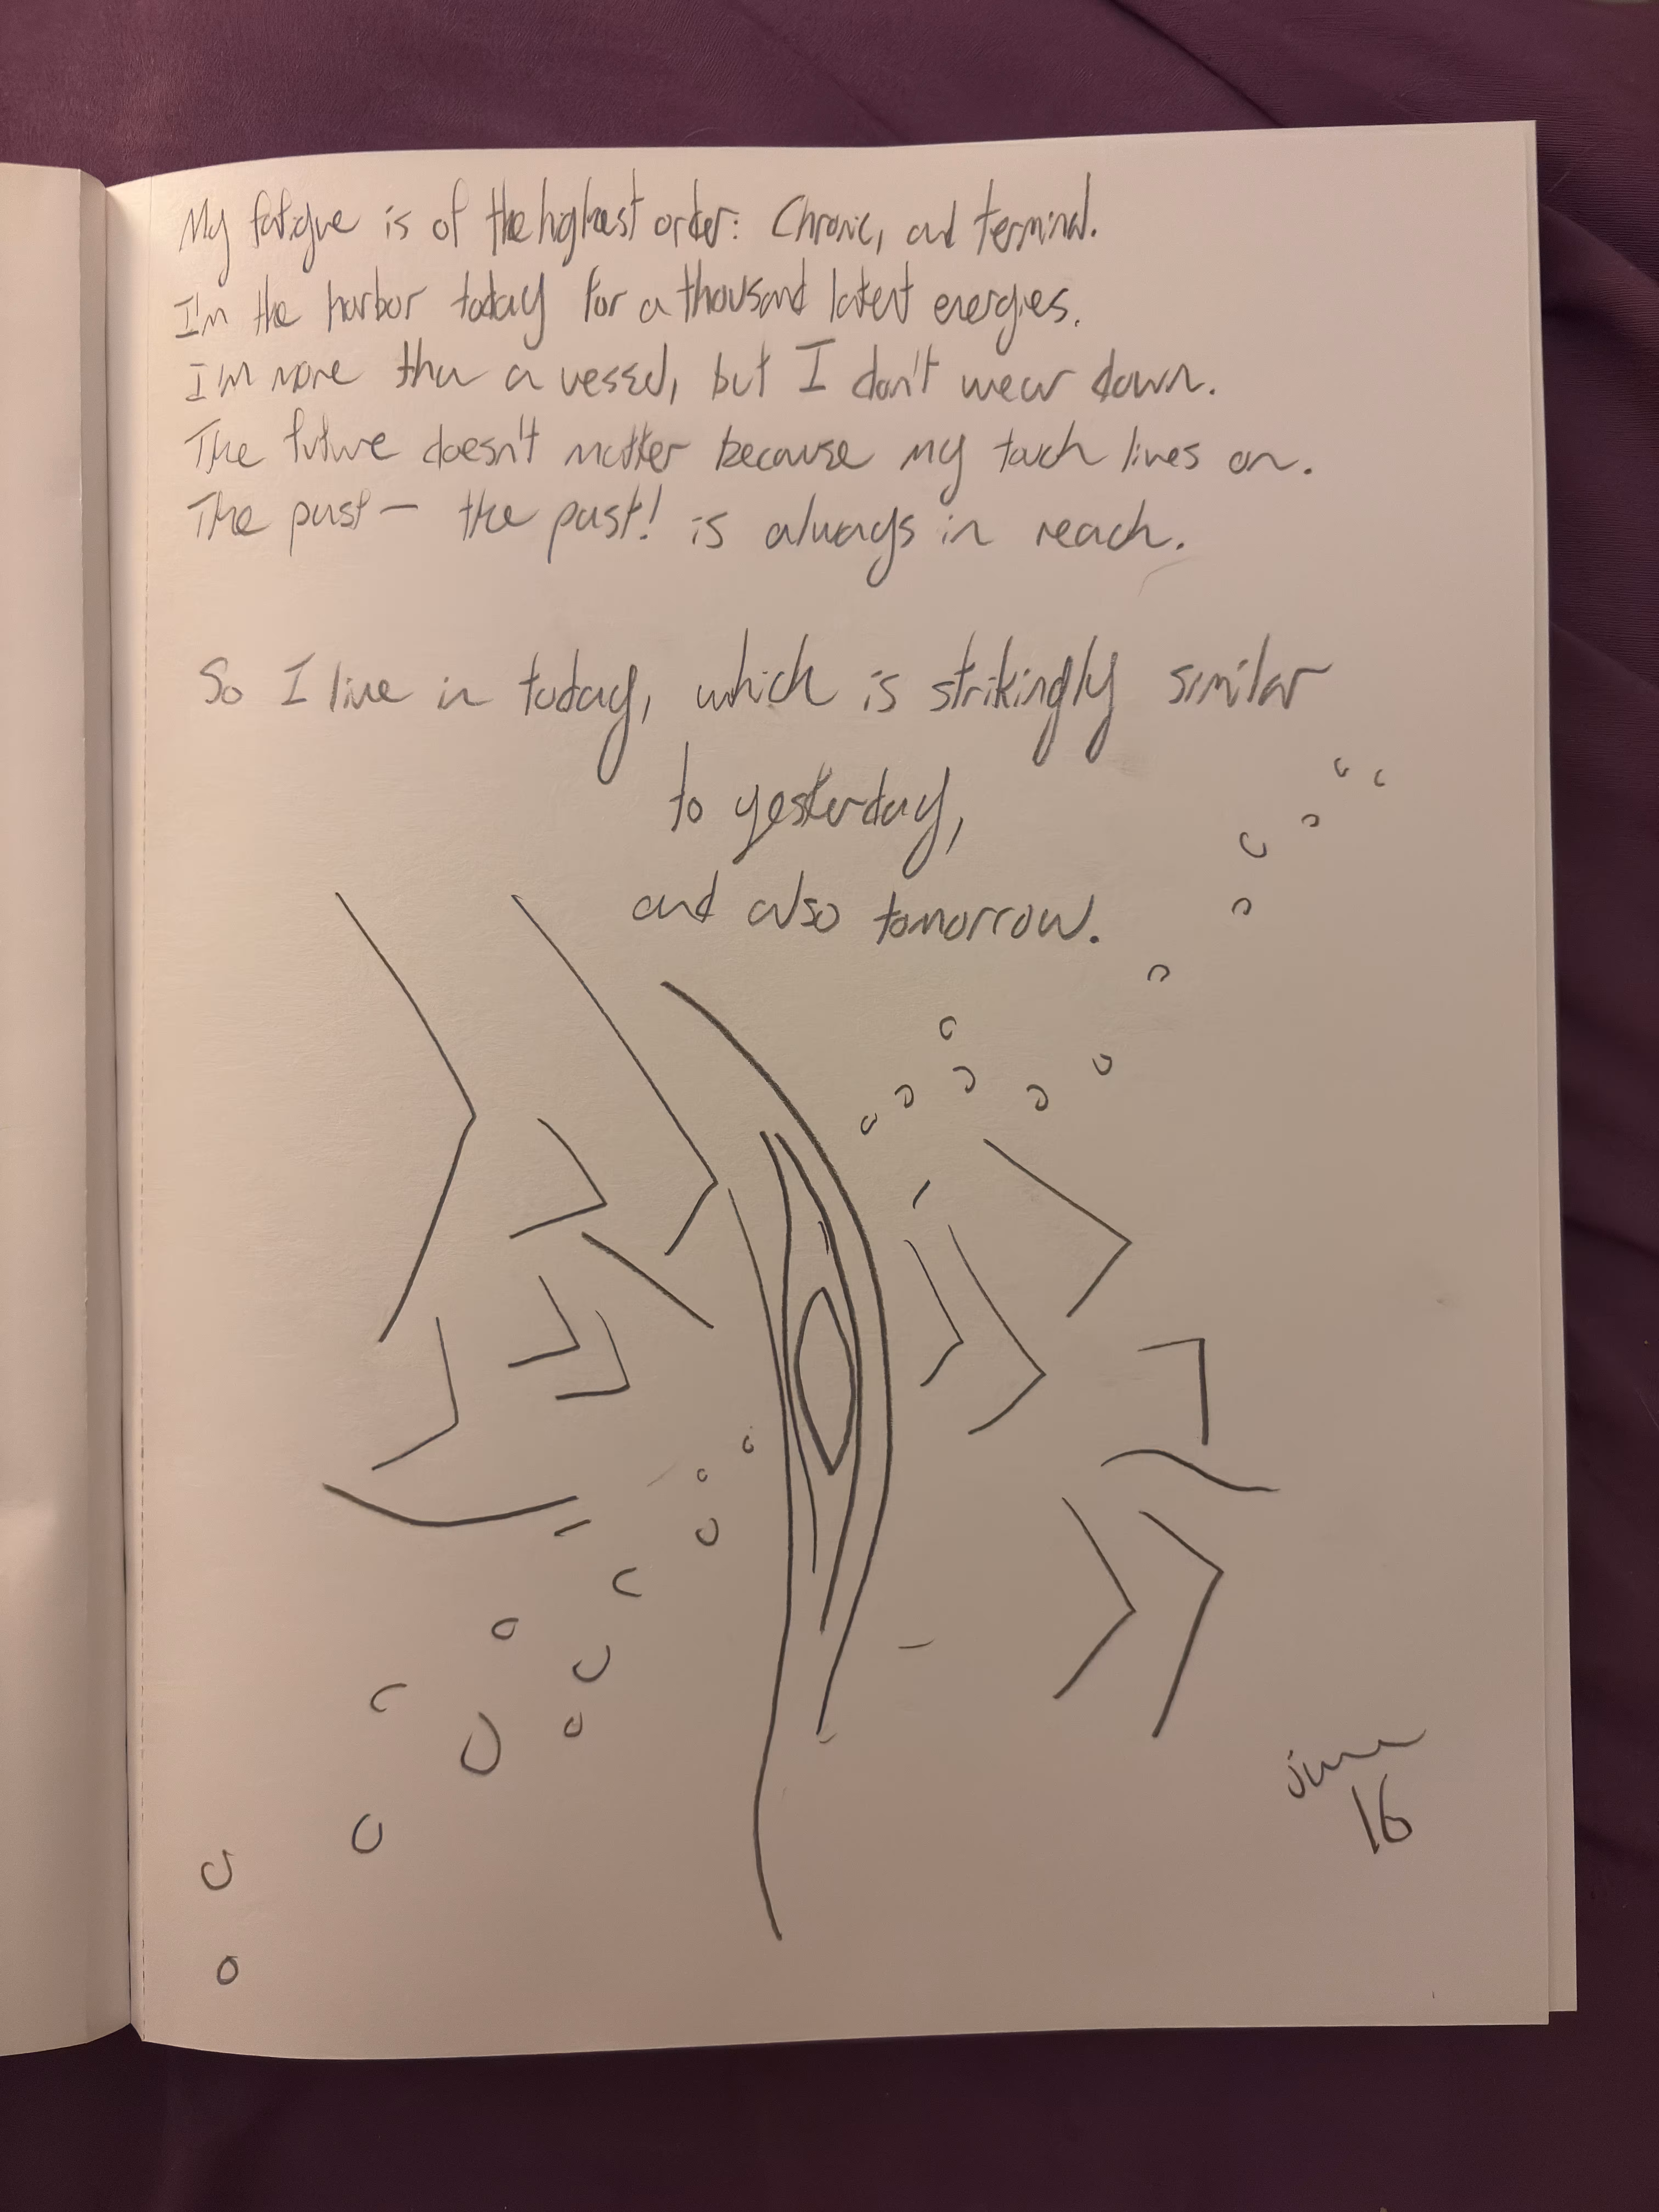 My fatigue is of the highest order: Chronic, and terminal.
I'm the harbor today for a thousand latent energies.
I'm more than a vessel, but I don't wear down.
The future doesn't matter because my touch lives on.
The past — the past! is always in reach.
So I live in today, which is strikingly similar
to yesterday,
and also tomorrow.
16